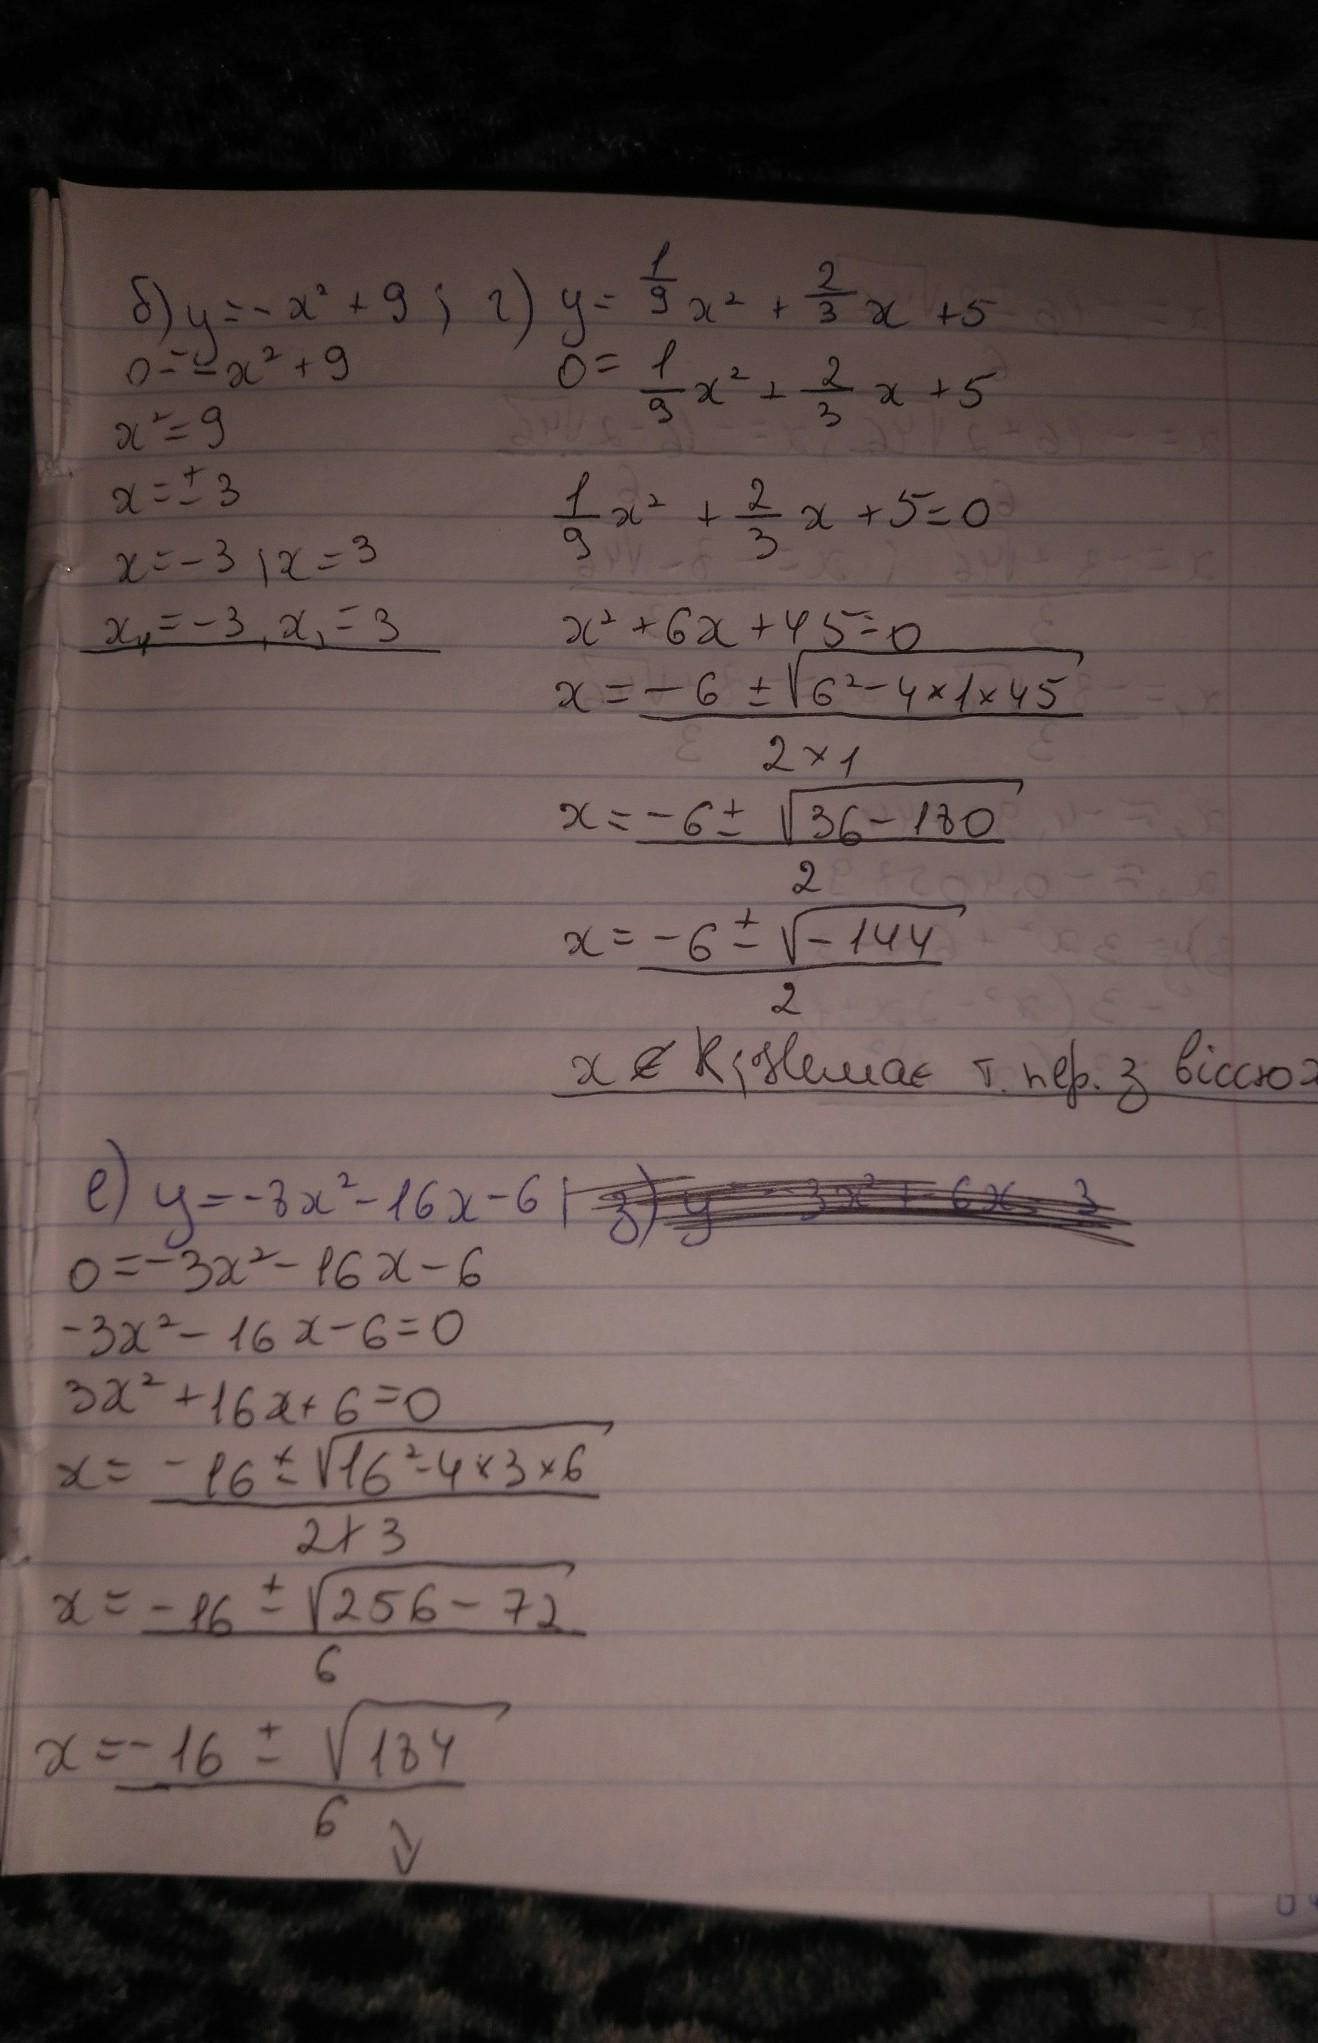 б) y = -x² + 9 ; г) y = 1/9 x² + 2/3 x + 5
0 = -x² + 9
x² = 9
x = ± 3
x = -3 ; x = 3
x₁ = -3, x₁ = 3
0 = 1/9 x² + 2/3 x + 5
1/9 x² + 2/3 x + 5 = 0
x² + 6x + 45 = 0
x = (-6 ± √(6² - 4 × 1 × 45)) / (2 × 1)
x = (-6 ± √(36 - 180)) / 2
x = (-6 ± √(-144)) / 2
x ∉ R; Немає т. пер. з віссю x
е) y = -3x² - 16x - 6 ; з) y = -3x² + 6x - 3
0 = -3x² - 16x - 6
-3x² - 16x - 6 = 0
3x² + 16x + 6 = 0
x = (-16 ± √(16² - 4 × 3 × 6)) / (2 × 3)
x = (-16 ± √(256 - 72)) / 6
x = (-16 ± √184) / 6